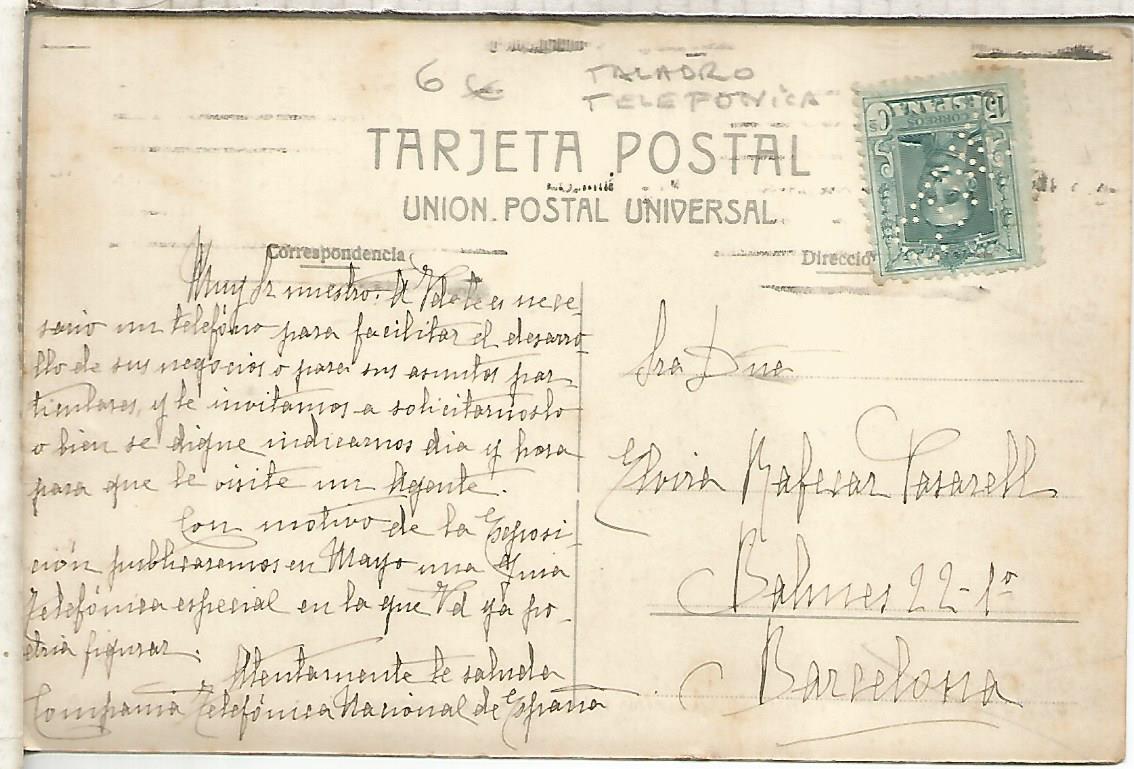 6 €
TALADRO
TELEFONICA
15 Cs
ESPAÑA
CORREOS
TARJETA POSTAL
UNION POSTAL UNIVERSAL
Correspondencia
Dirección
Muy Sr nuestro: A Vd le es nece-
sario un teléfono para facilitar el desarro-
llo de sus negocios o para sus asuntos par-
ticulares, y le invitamos a solicitarnoslo
o bien se digne indicarnos dia y hora
para que le visite un Agente.
Con motivo de la Exposi-
ción publicaremos en Mayo una Guia
telefónica especial en la que Vd ya po-
dria figurar.
Atentamente le saluda
Compañia Telefónica Nacional de España
Sra Dña
Elvira Rafecar Pasarell
Balmes 22-1º
Barcelona